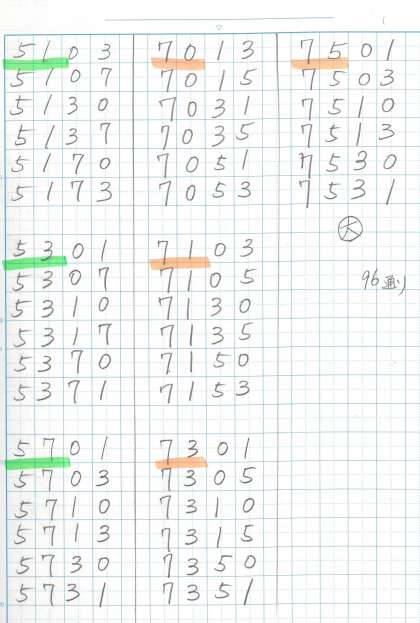 5103
5107
5130
5137
5170
5173
5301
5307
5310
5317
5370
5371
5701
5703
5710
5713
5730
5731
7013
7015
7031
7035
7051
7053
7103
7105
7130
7135
7150
7153
7301
7305
7310
7315
7350
7351
7501
7503
7510
7513
7530
7531
大
96通り